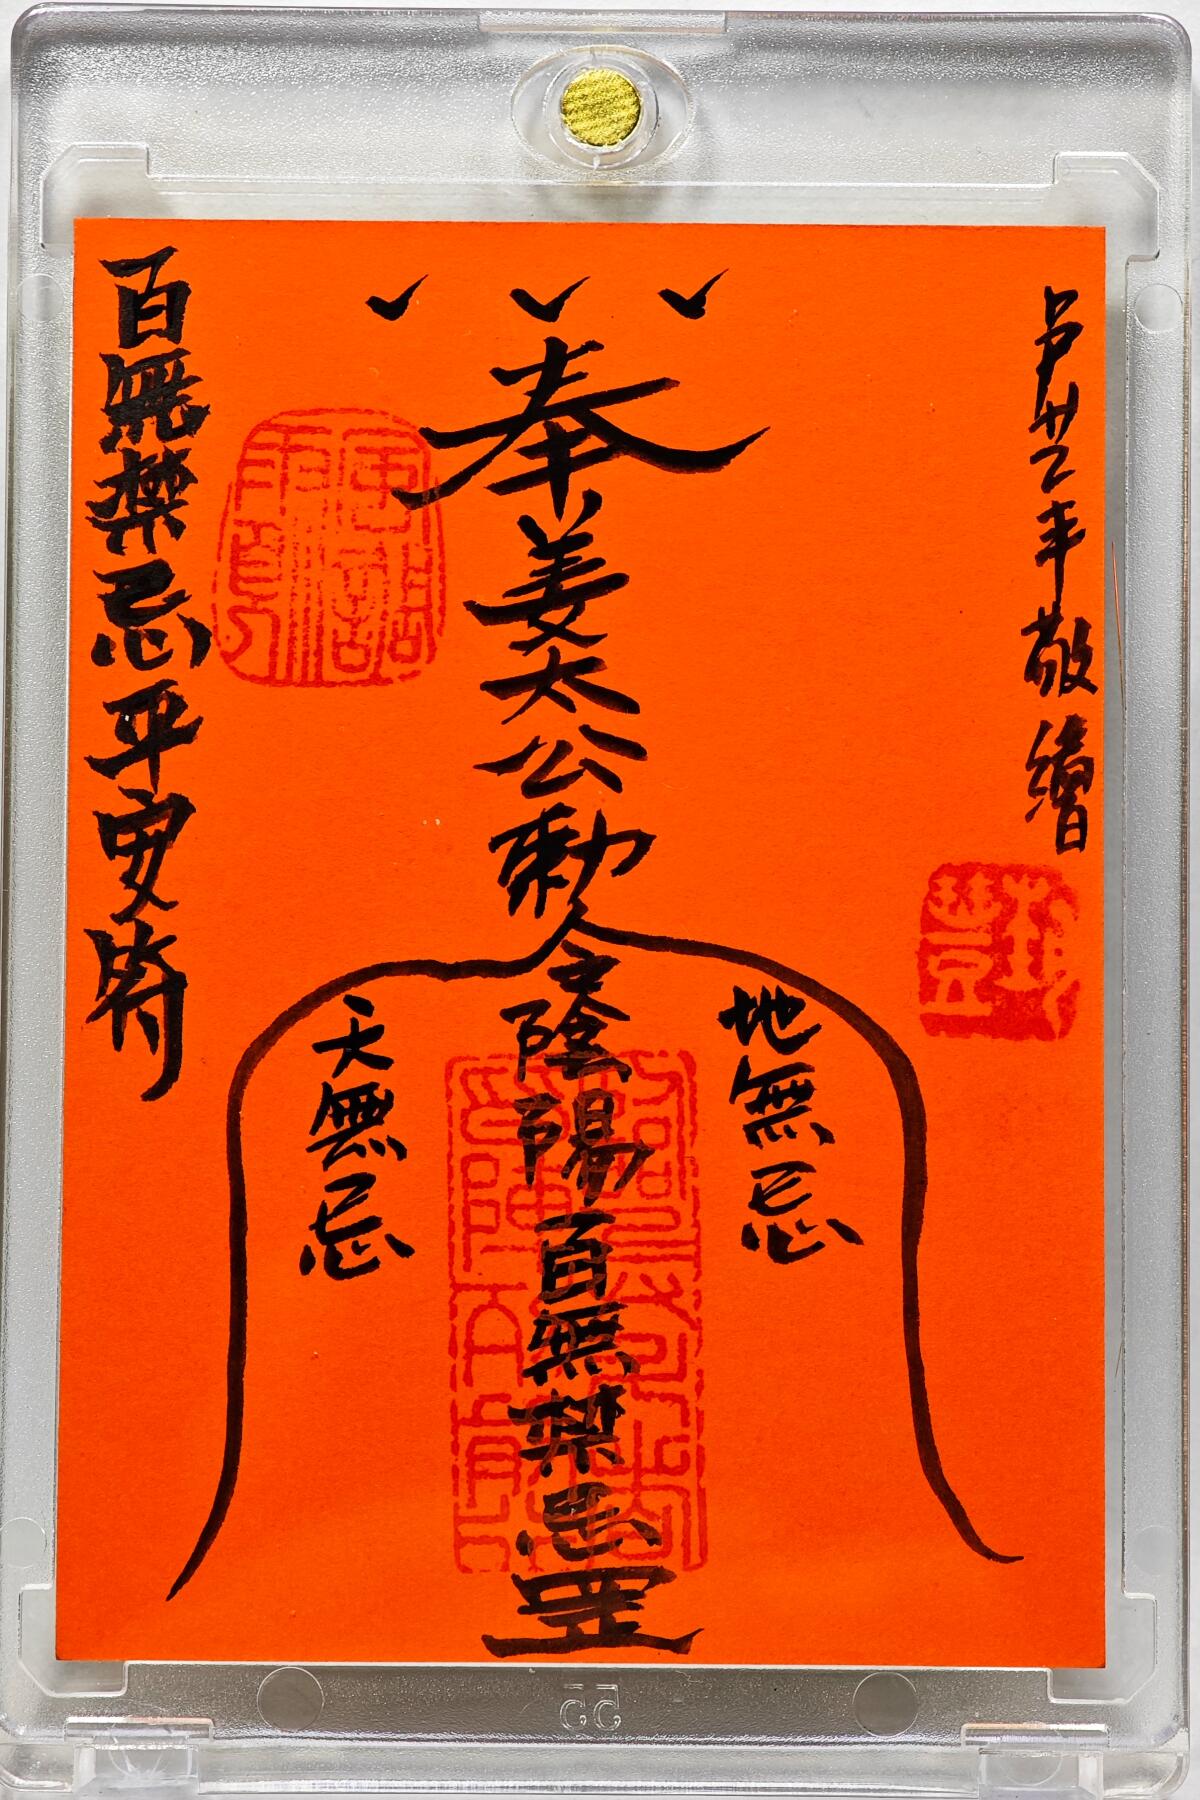 年敬繪
奉姜太公勅令陰陽百無禁忌罡
地無忌
天無忌
百無禁忌平安符
55